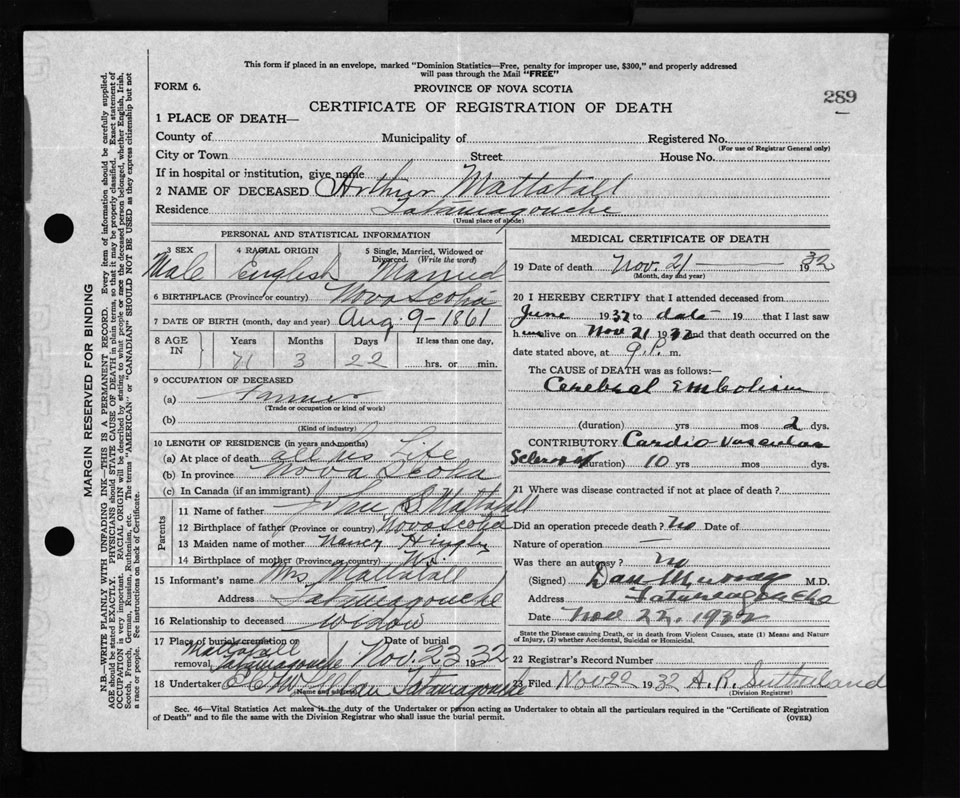 This form if placed in an envelope, marked "Dominion Statistics—Free, penalty for improper use, $300," and properly addressed
will pass through the Mail "FREE"
FORM 6.
PROVINCE OF NOVA SCOTIA
289
CERTIFICATE OF REGISTRATION OF DEATH
1 PLACE OF DEATH—
County of Municipality of Registered No.
(For use of Registrar General only)
City or Town Street House No.
If in hospital or institution, give name
2 NAME OF DECEASED Arthur Mattatall
Residence Tatamagouche
(Usual place of abode)
PERSONAL AND STATISTICAL INFORMATION
3 SEX 4 RACIAL ORIGIN 5 Single, Married, Widowed or Divorced. (Write the word)
Male English Married
6 BIRTHPLACE (Province or country) Nova Scotia
7 DATE OF BIRTH (month, day and year) Aug. 9–1861
8 AGE IN Years Months Days If less than one day,
71 3 22 hrs. or min.
9 OCCUPATION OF DECEASED
(a) Farmer
(Trade or occupation or kind of work)
(b)
(Kind of industry)
10 LENGTH OF RESIDENCE (in years and months)
(a) At place of death all his Life
(b) In province Nova Scotia
(c) In Canada (if an immigrant)
Parents
11 Name of father John S. Mattatall
12 Birthplace of father (Province or country) Nova Scotia
13 Maiden name of mother Nancy
14 Birthplace of mother (Province or country) N.S.
15 Informant's name Mrs Mattatall
Address Tatamagouche
16 Relationship to deceased widow
17 Place of burial, cremation or removal Mattatall Tatamagouche Date of burial Nov. 23 1932
18 Undertaker Tatamagouche
(Name and address)
MEDICAL CERTIFICATE OF DEATH
19 Date of death Nov. 21 1932
(Month, day and year)
20 I HEREBY CERTIFY that I attended deceased from
June 1932 to date 19 that I last saw
him alive on Nov 21 1932 and that death occurred on the
date stated above, at 9 P. m.
The CAUSE OF DEATH was as follows:
Cerebral Embolism
(duration) yrs mos 2 dys.
CONTRIBUTORY Cardio Vascular
Sclerosis (duration) 10 yrs mos dys.
21 Where was disease contracted if not at place of death?
Did an operation precede death? no Date of
Nature of operation —
Was there an autopsy? no
(Signed) Dan Murray M.D.
Address Tatamagouche
Date Nov 22, 1932
State the Disease causing Death, or in death from Violent Causes, state (1) Means and Nature
of Injury, (2) whether Accidental, Suicidal or Homicidal.
22 Registrar's Record Number
23 Filed Nov 22 1932 A. R. Sutherland
(Division Registrar)
Sec. 46—Vital Statistics Act makes it the duty of the Undertaker or person acting as Undertaker to obtain all the particulars required in the "Certificate of Registration
of Death" and to file the same with the Division Registrar who shall issue the burial permit.
(OVER)
MARGIN RESERVED FOR BINDING
N.B.—WRITE PLAINLY WITH UNFADING INK—THIS IS A PERMANENT RECORD. Every item of information should be carefully supplied.
AGE should be stated EXACTLY. PHYSICIANS should STATE CAUSE OF DEATH in plain terms, so that it may be properly classified. Exact statement of
OCCUPATION is very important. RACIAL ORIGIN will be described by stating to what people or race the deceased person belonged, whether English, Irish,
Scotch, French, German, Russian, Ruthenian, etc. The terms "AMERICAN" or "CANADIAN" SHOULD NOT BE USED as they express citizenship but not
a race or people. See instructions on back of Certificate.